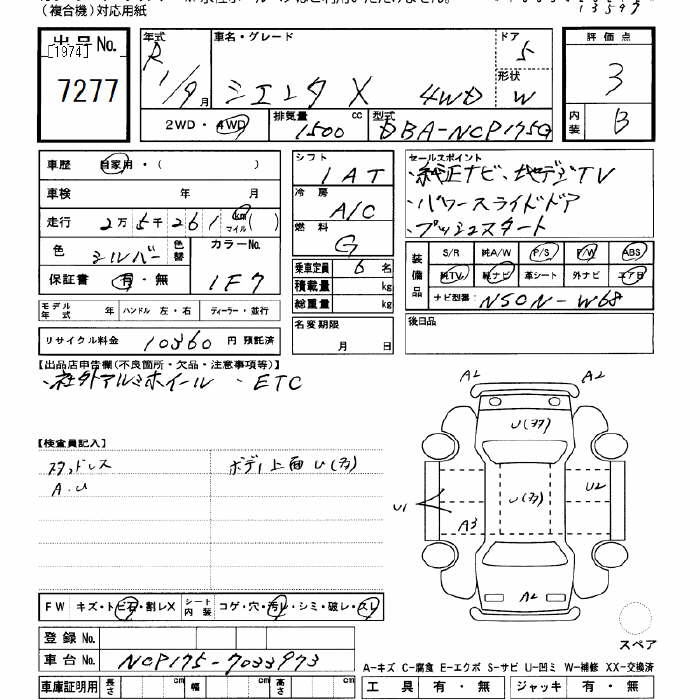 (複合機)対応用紙
13597
出品No.
[1974]
7277
年式
R
1/9月
車名・グレード
シエンタ X 4WD
ドア
5
形状
W
2WD・4WD
排気量 1500 cc
型式 DBA-NCP175G
評価点
3
内装
B
車歴 自家用・( )
車検 年 月
走行 2万5千261 km マイル ( )
色 シルバー
色替
カラーNo.
1F7
保証書 有・無
モデル年式 年 ハンドル 左・右 ディーラー・並行
リサイクル料金 10360 円 預託済
シフト
IAT
冷房
A/C
燃料
G
乗車定員 6 名
積載量 kg
総重量 kg
名変期限
月 日
セールスポイント
・純正ナビ、地デジTV
・パワースライドドア
・プッシュスタート
装備品
S/R 純A/W P/S P/W ABS
純TV 純ナビ 革シート 外ナビ エアB
ナビ型番 NSON-W68
後日品
【出品店申告欄(不良箇所・欠品・注意事項等)】
・社外アルミホイール ・ETC
【検査員記入】
スタッドレス
A.U
ボディ上面U(多)
A2
A2
U(多)
U(多)
U1
U2
A3
A2
スペア
FW キズ・トビ石・割レX
シート内装 コゲ・穴・汚レ・シミ・破レ・スレ
登録No.
車台No. NCP175-7033973
車庫証明用 長さ cm 幅 cm 高さ cm
A-キズ C-腐食 E-エクボ S-サビ U-凹ミ W-補修 XX-交換済
工具 有・無 ジャッキ 有・無